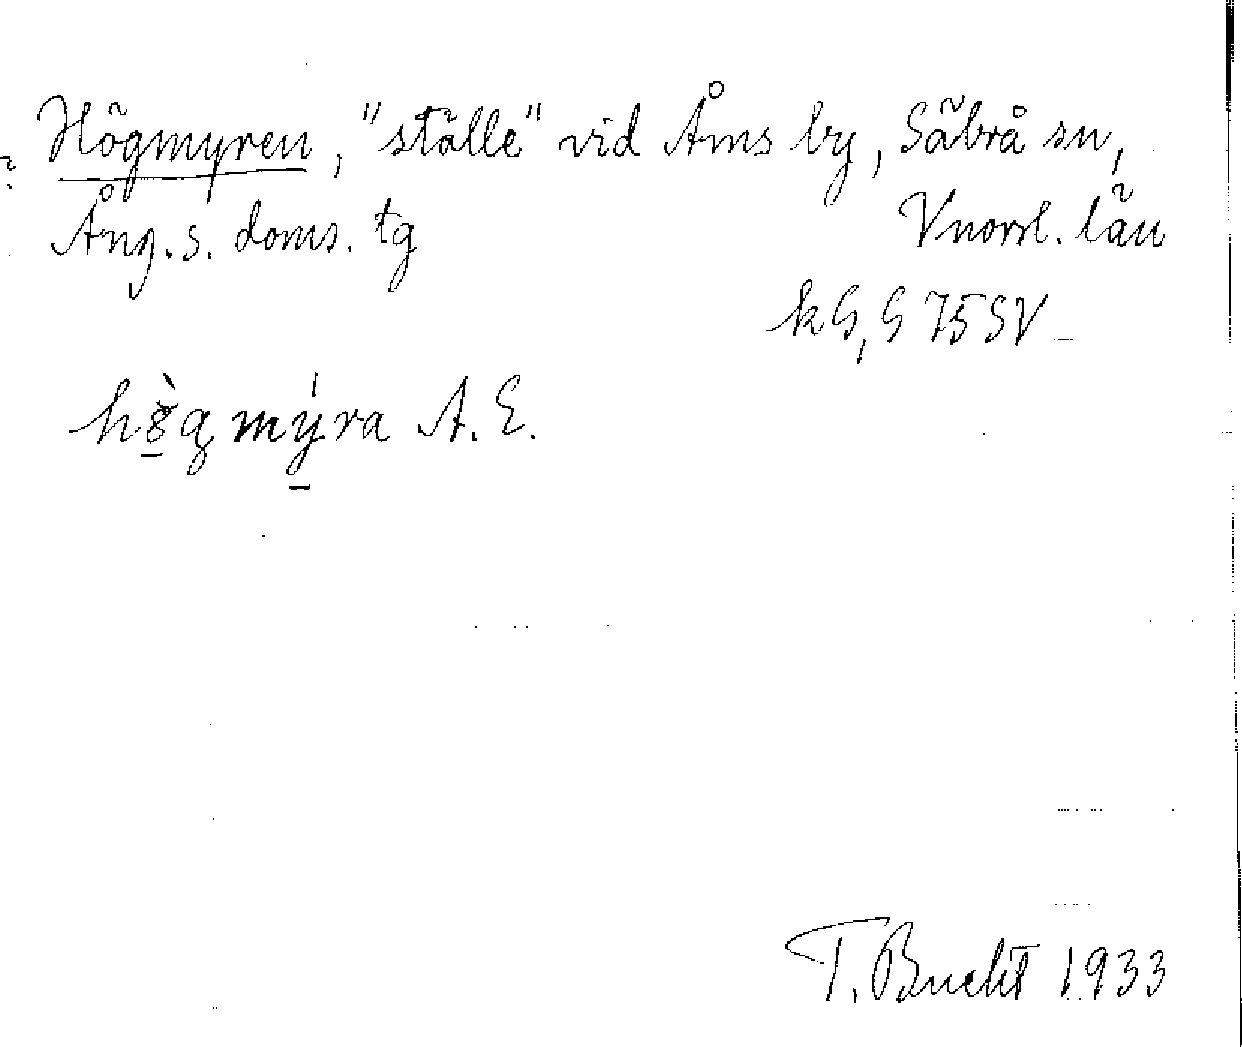 Högmyren, "ställe" vid Åms by, Säbrå sn,
Ång. s. doms. tg Vnorrl. län
kG, G 75 SV
A. E.
T. Bucht 1933